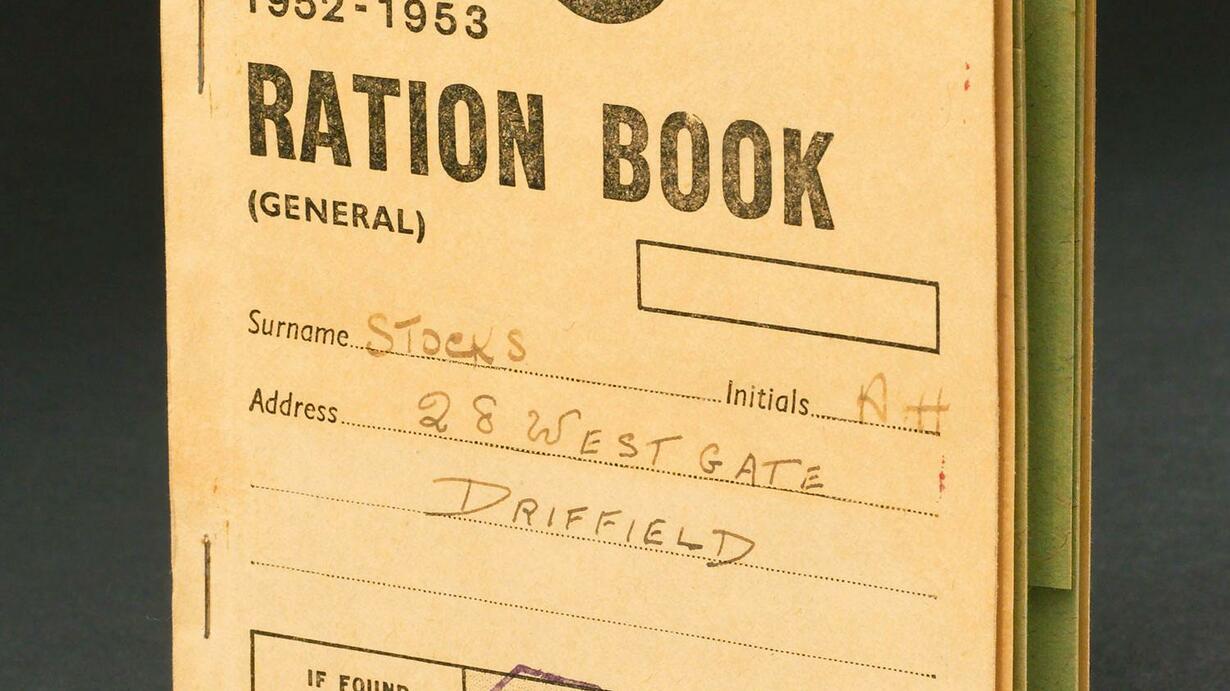 1952-1953
RATION BOOK
(GENERAL)
Surname STOCKS Initials A H
Address 28 WEST GATE
DRIFFIELD
IF FOUND